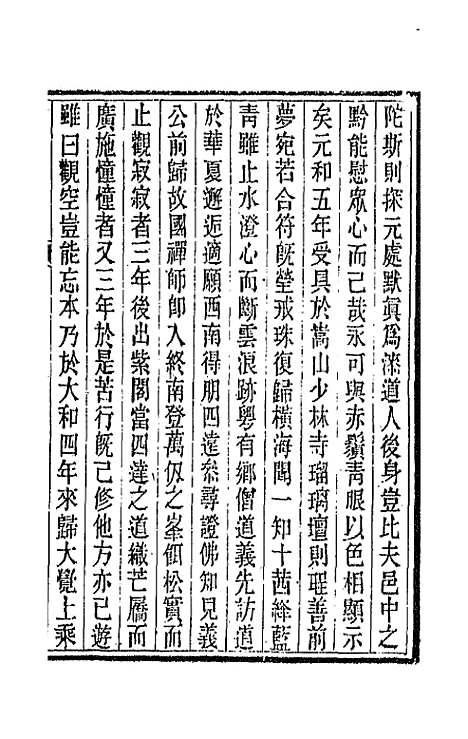 陀斯則探元處默眞爲漆道人後身豈比夫邑中之
黔能慰眾心而已哉永可與赤鬚靑眼以色相顯示
矣元和五年受具於嵩山少林寺瑠璃壇則聖善前
夢宛若合符旣瑩戒珠復歸橫海聞一知十茜絳藍
靑雖止水澄心而斷雲浪跡粤有鄉僧道義先訪道
於華夏邂逅適願西南得朋四遠叅尋證佛知見義
公前歸故國禪師卽入終南登萬仭之峯餌松實而
止觀寂寂者三年後出紫閣當四達之道織芒屩而
廣施憧憧者又三年於是苦行旣已修他方亦已遊
雖曰觀空豈能忘本乃於大和四年來歸大覺上乘